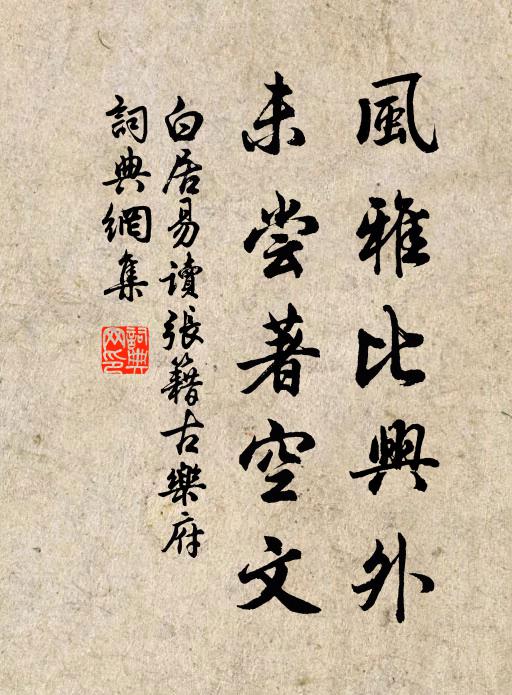 風雅比興外
未尝著空文
白居易讀張籍古樂府
詞典網集
詞典
网印